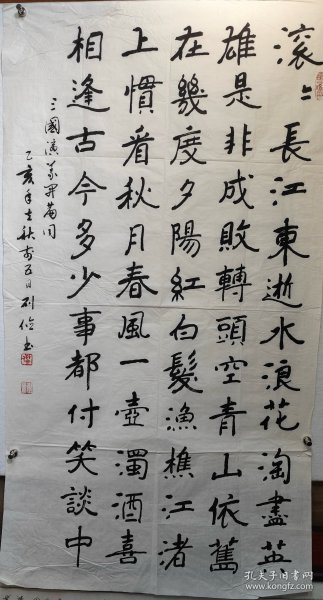 滚〻長江東逝水浪花淘盡英
雄是非成敗轉頭空青山依舊
在幾度夕陽紅白髮漁樵江渚
上慣看秋月春風一壺濁酒喜
相逢古今多少事都付笑談中
三國演义開篇词
乙亥年立秋前五日刘俭书
孔夫子旧书网